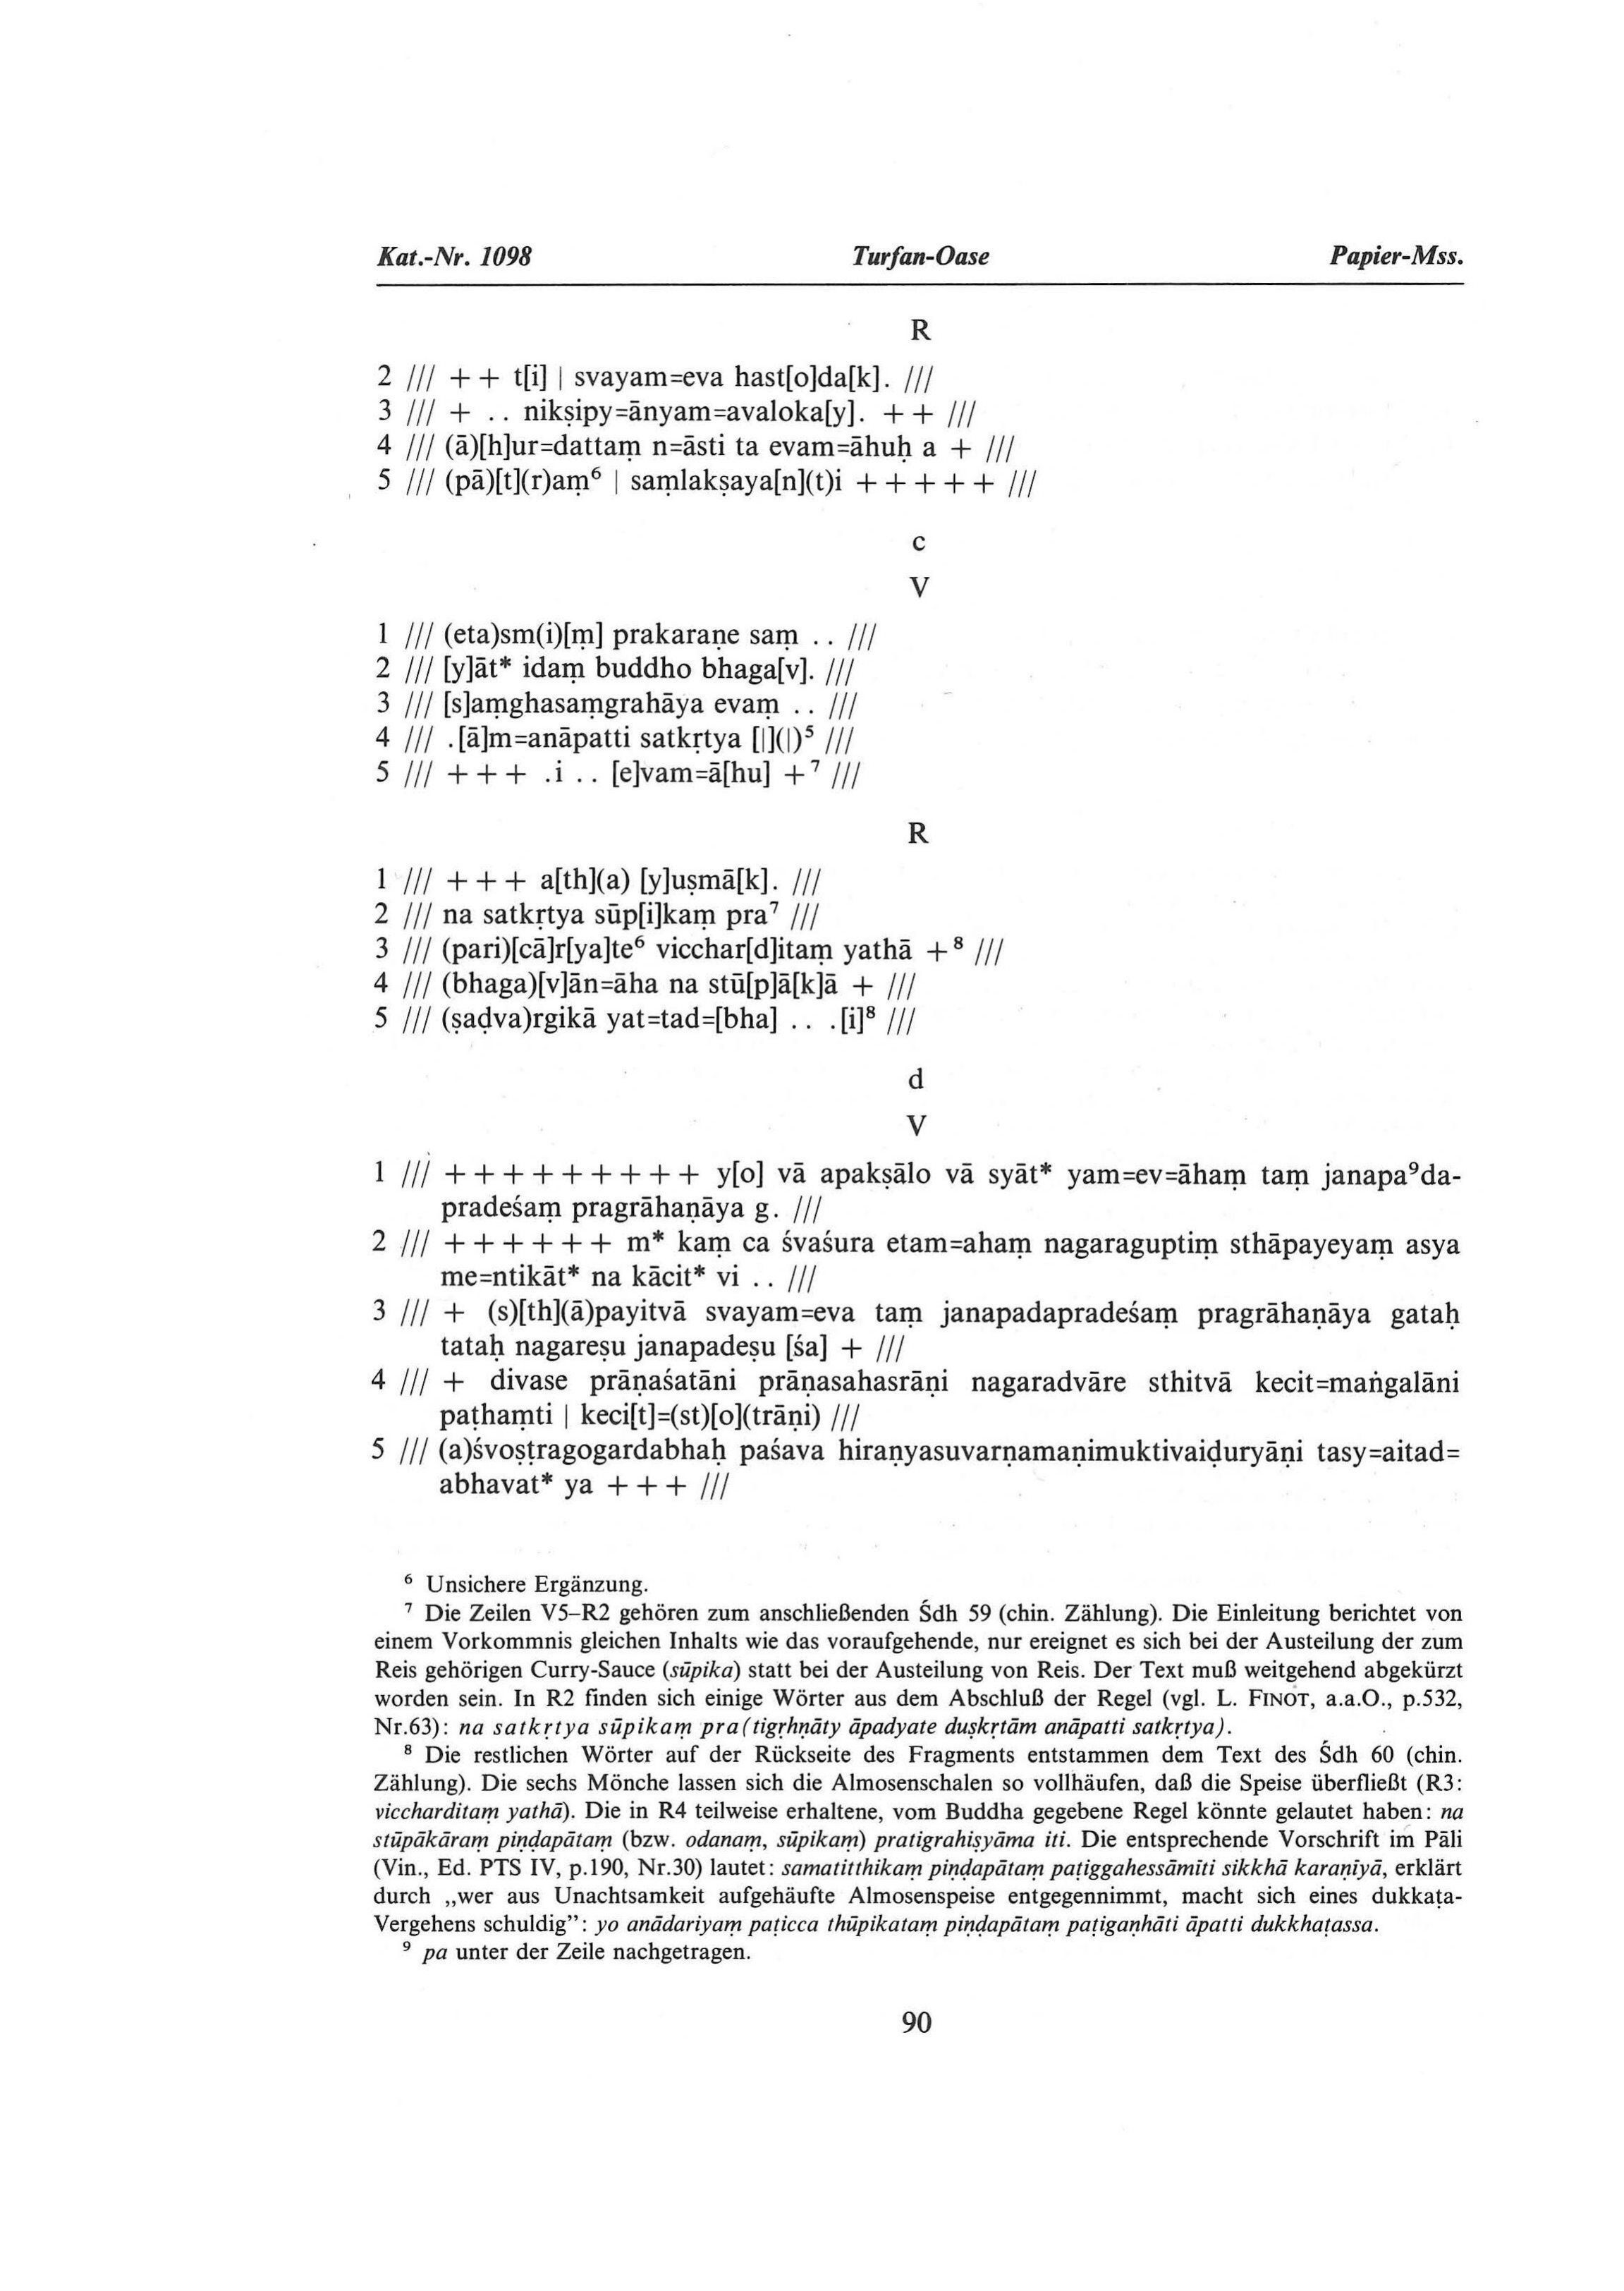 Kat.-Nr. 1098 Turfan-Oase Papier-Mss.
R
2 /// + + t[i] | svayam=eva hast[o]da[k]. ///
3 /// + .. nikṣipy=ānyam=avaloka[y]. + + ///
4 /// (ā)[h]ur=dattaṃ n=āsti ta evam=āhuḥ a + ///
5 /// (pā)[t](r)aṃ⁶ | saṃlakṣaya[n](t)i + + + + + ///
c
V
1 /// (eta)sm(i)[ṃ] prakaraṇe saṃ .. ///
2 /// [y]āt* idaṃ buddho bhaga[v]. ///
3 /// [s]aṃghasaṃgrahāya evaṃ .. ///
4 /// .[ā]m=anāpatti satkṛtya [|](|)⁵ ///
5 /// + + + .i .. [e]vam=ā[hu] +⁷ ///
R
1 /// + + + a[th](a) [y]uṣmā[k]. ///
2 /// na satkṛtya sūp[i]kaṃ pra⁷ ///
3 /// (pari)[cā]r[ya]te⁶ vicchar[d]itaṃ yathā +⁸ ///
4 /// (bhaga)[v]ān=āha na stū[p]ā[k]ā + ///
5 /// (ṣaḍva)rgikā yat=tad=[bha] .. .[i]⁸ ///
d
V
1 /// + + + + + + + + + y[o] vā apakṣālo vā syāt* yam=ev=āhaṃ taṃ janapa⁹da-
pradeśaṃ pragrāhaṇāya g. ///
2 /// + + + + + + m* kaṃ ca śvaśura etam=ahaṃ nagaraguptiṃ sthāpayeyaṃ asya
me=ntikāt* na kācit* vi .. ///
3 /// + (s)[th](ā)payitvā svayam=eva taṃ janapadapradeśaṃ pragrāhaṇāya gataḥ
tataḥ nagareṣu janapadeṣu [śa] + ///
4 /// + divase prāṇaśatāni prāṇasahasrāṇi nagaradvāre sthitvā kecit=maṅgalāni
paṭhaṃti | keci[t]=(st)[o](trāṇi) ///
5 /// (a)śvoṣṭragogardabhaḥ paśava hiraṇyasuvarṇamaṇimuktivaiḍuryāṇi tasy=aitad=
abhavat* ya + + + ///
⁶ Unsichere Ergänzung.
⁷ Die Zeilen V5–R2 gehören zum anschließenden Śdh 59 (chin. Zählung). Die Einleitung berichtet von
einem Vorkommnis gleichen Inhalts wie das voraufgehende, nur ereignet es sich bei der Austeilung der zum
Reis gehörigen Curry-Sauce (sūpika) statt bei der Austeilung von Reis. Der Text muß weitgehend abgekürzt
worden sein. In R2 finden sich einige Wörter aus dem Abschluß der Regel (vgl. L. FINOT, a.a.O., p.532,
Nr.63): na satkṛtya sūpikaṃ pra(tigṛhṇāty āpadyate duṣkṛtām anāpatti satkṛtya).
⁸ Die restlichen Wörter auf der Rückseite des Fragments entstammen dem Text des Śdh 60 (chin.
Zählung). Die sechs Mönche lassen sich die Almosenschalen so vollhäufen, daß die Speise überfließt (R3:
viccharditaṃ yathā). Die in R4 teilweise erhaltene, vom Buddha gegebene Regel könnte gelautet haben: na
stūpākāraṃ piṇḍapātaṃ (bzw. odanaṃ, sūpikaṃ) pratigrahiṣyāma iti. Die entsprechende Vorschrift im Pāli
(Vin., Ed. PTS IV, p.190, Nr.30) lautet: samatitthikaṃ piṇḍapātaṃ paṭiggahessāmīti sikkhā karaṇīyā, erklärt
durch „wer aus Unachtsamkeit aufgehäufte Almosenspeise entgegennimmt, macht sich eines dukkaṭa-
Vergehens schuldig”: yo anādariyaṃ paṭicca thūpikataṃ piṇḍapātaṃ paṭigaṇhāti āpatti dukkhaṭassa.
⁹ pa unter der Zeile nachgetragen.
90